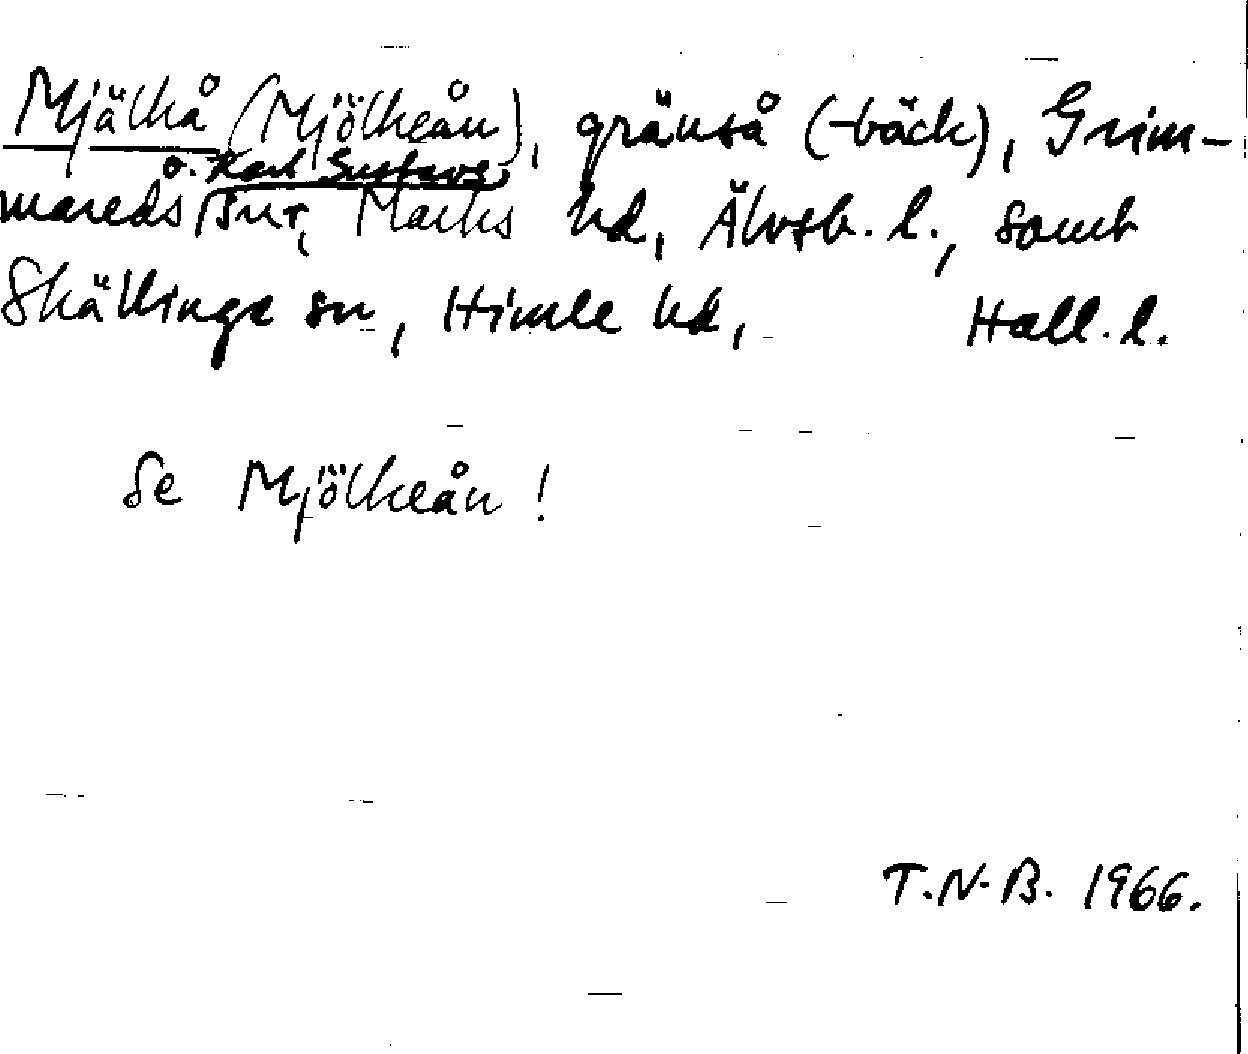 Mjälkå (Mjölkeån), gränså (-bäck), Grim-
o. Karl Gustavs
mareds snr, Marks hd, Älvsb. l., samt
Skällinge sn, Himle hd, Hall. l.
Se Mjölkeån!
T.N.B. 1966.